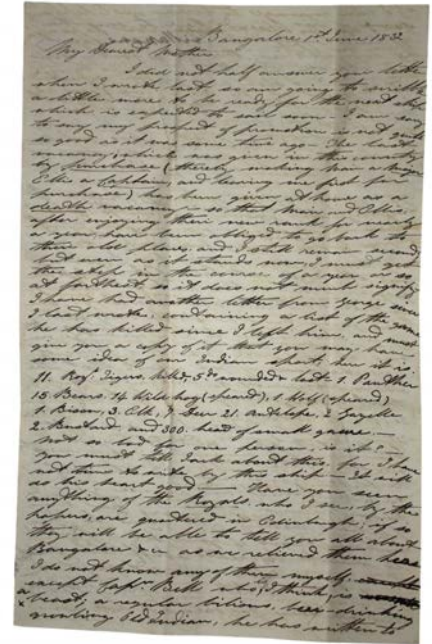 Bangalore 1st June 1832
My Dearest Mother
I did not half answer your letter
when I wrote last, so am going to scribble
a little more to be ready for the next ship
which is expected to sail soon — I am sorry
to say my prospect of promotion is not quite
so good as it was some time ago — The last
which was given in this country
by purchase (thereby making Main a Major
Ellis a Captain, and leaving me first for
purchase) has been given at home as a
death vacancy so that Main and Ellis,
after enjoying their new rank for nearly
a year, have been obliged to go back to
their old places, and I still remain second,
but even as it stands now, I must get
the step in the course of a year or so
at farthest so it does not much signify
I have had another letter from George since
I last wrote, containing a list of the game
he has killed since I left him, and must
give you a copy of it that you may have
some idea of an Indian sport, here it is.
11. Royl Tigers killed, 5 do wounded & lost. 1. Panther
15 Bears. 14 Wild hog (speard), 1 Wolf (speard)
1. Bison, 3. Elk, 7 Deer 21. Antelope, 2 Gazelle
2. Bustard and 300. head of small game. —
not so bad for one person, is it? —
you must tell Jack about this, for I have
not time to write by this ship — It will
do his heart good — Have you seen
anything of the Royals, who I see, by the
papers, are quartered in Edinburgh, if so
they will be able to tell you all about
Bangalore &c as we relieved them here
I do not know any of them myself,
except Capn Bell who, I think, is
a beast, a regular bilious, beer-drinking
Old Indian, he has written to